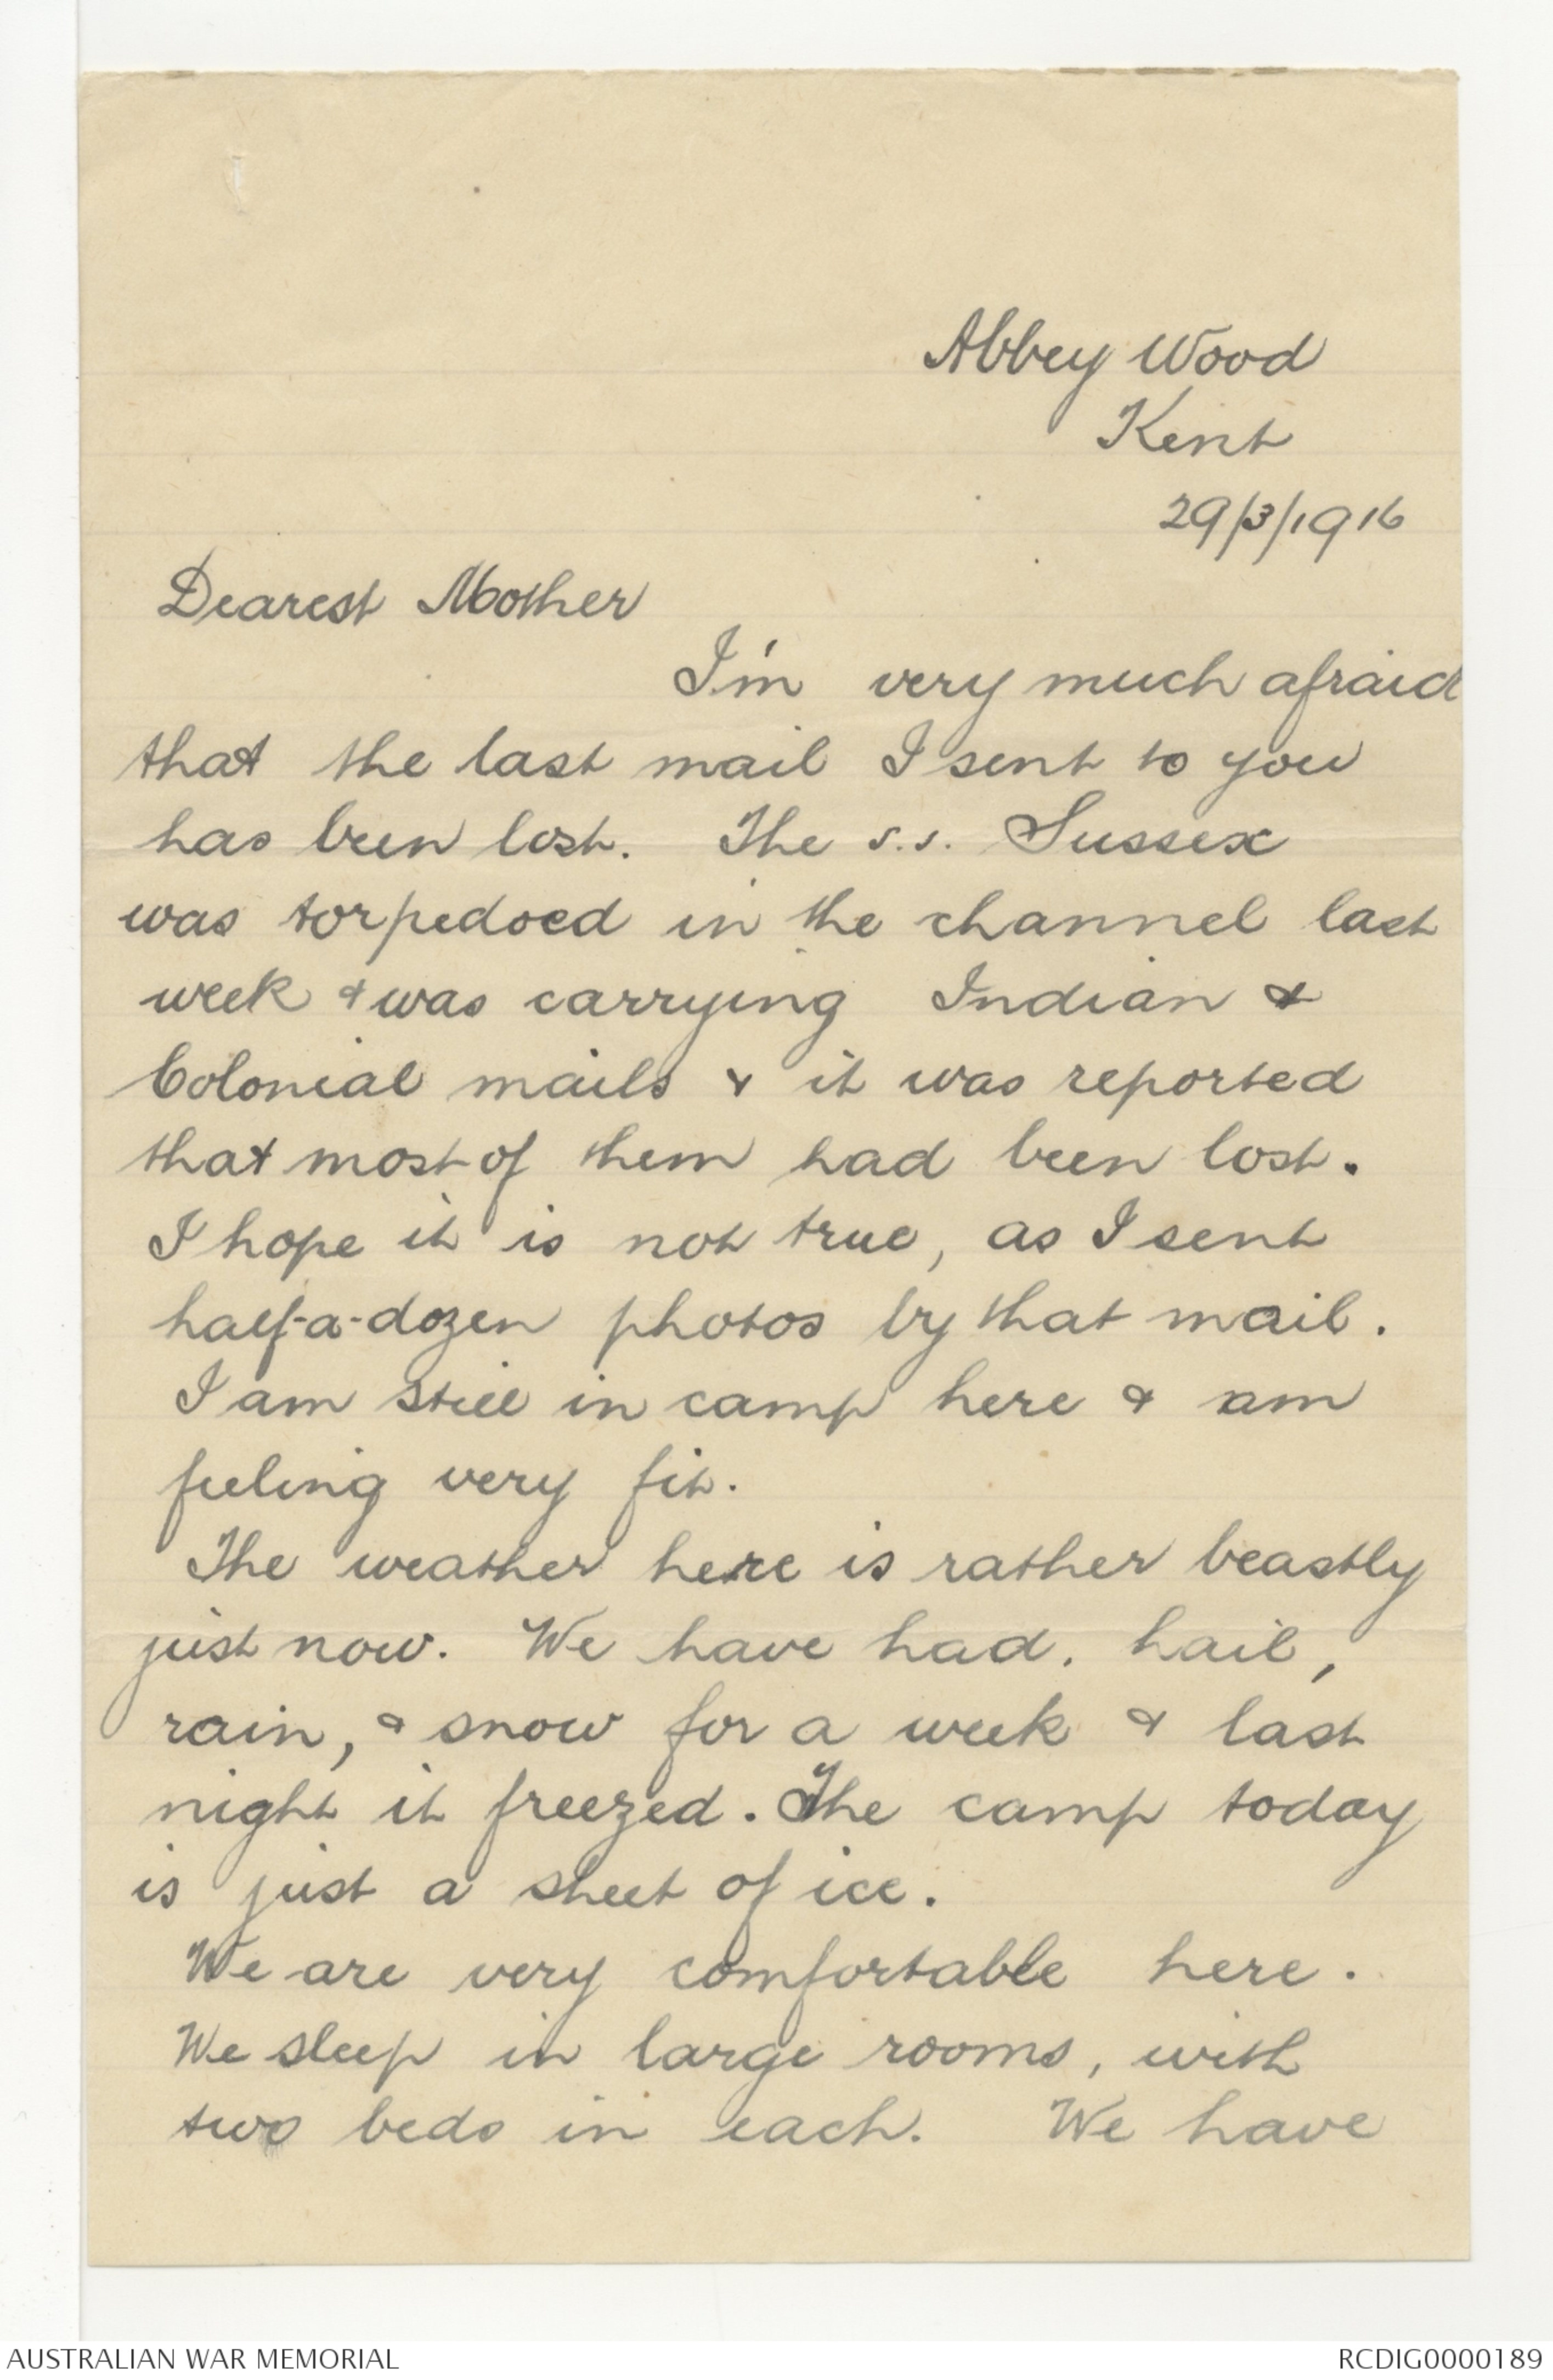 Abbey Wood
Kent
29/3/1916
Dearest Mother
I'm very much afraid
that the last mail I sent to you
has been lost. The s.s. Sussex
was torpedoed in the channel last
week & was carrying Indian &
Colonial mails & it was reported
that most of them had been lost.
I hope it is not true, as I sent
half-a-dozen photos by that mail.
I am still in camp here & am
feeling very fit.
The weather here is rather beastly
just now. We have had. hail,
rain, & snow for a week & last
night it freezed. The camp today
is just a sheet of ice.
We are very comfortable here.
We sleep in large rooms, with
two beds in each. We have
AUSTRALIAN WAR MEMORIAL
RCDIG0000189